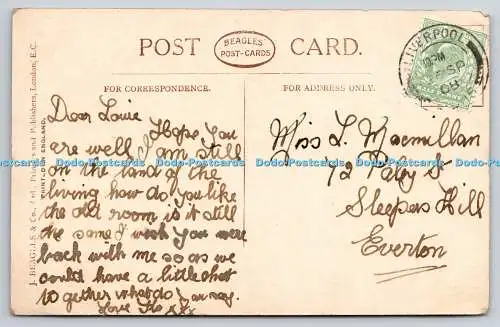 POST CARD.
BEAGLES
POST-CARDS
FOR CORRESPONDENCE.
FOR ADDRESS ONLY.
J. BEAGLES & Co., Ltd., Printers and Publishers, London, E.C.
PRINTED IN ENGLAND.
LIVERPOOL
SP
08
Dear Louie
Hope You
are well I am still
on the land of the
living how do you like
the old room is it still
the same I wish You were
back with me so as we
could have a little chat
to gether what do You say.
Love Flo xxx
Miss L. Macmillan
72 Paley St
Sleepers Hill
Everton
Dodo-Postcards Dodo-Postcards Dodo-Postcards Dodo-Postcards Dodo-Postcards